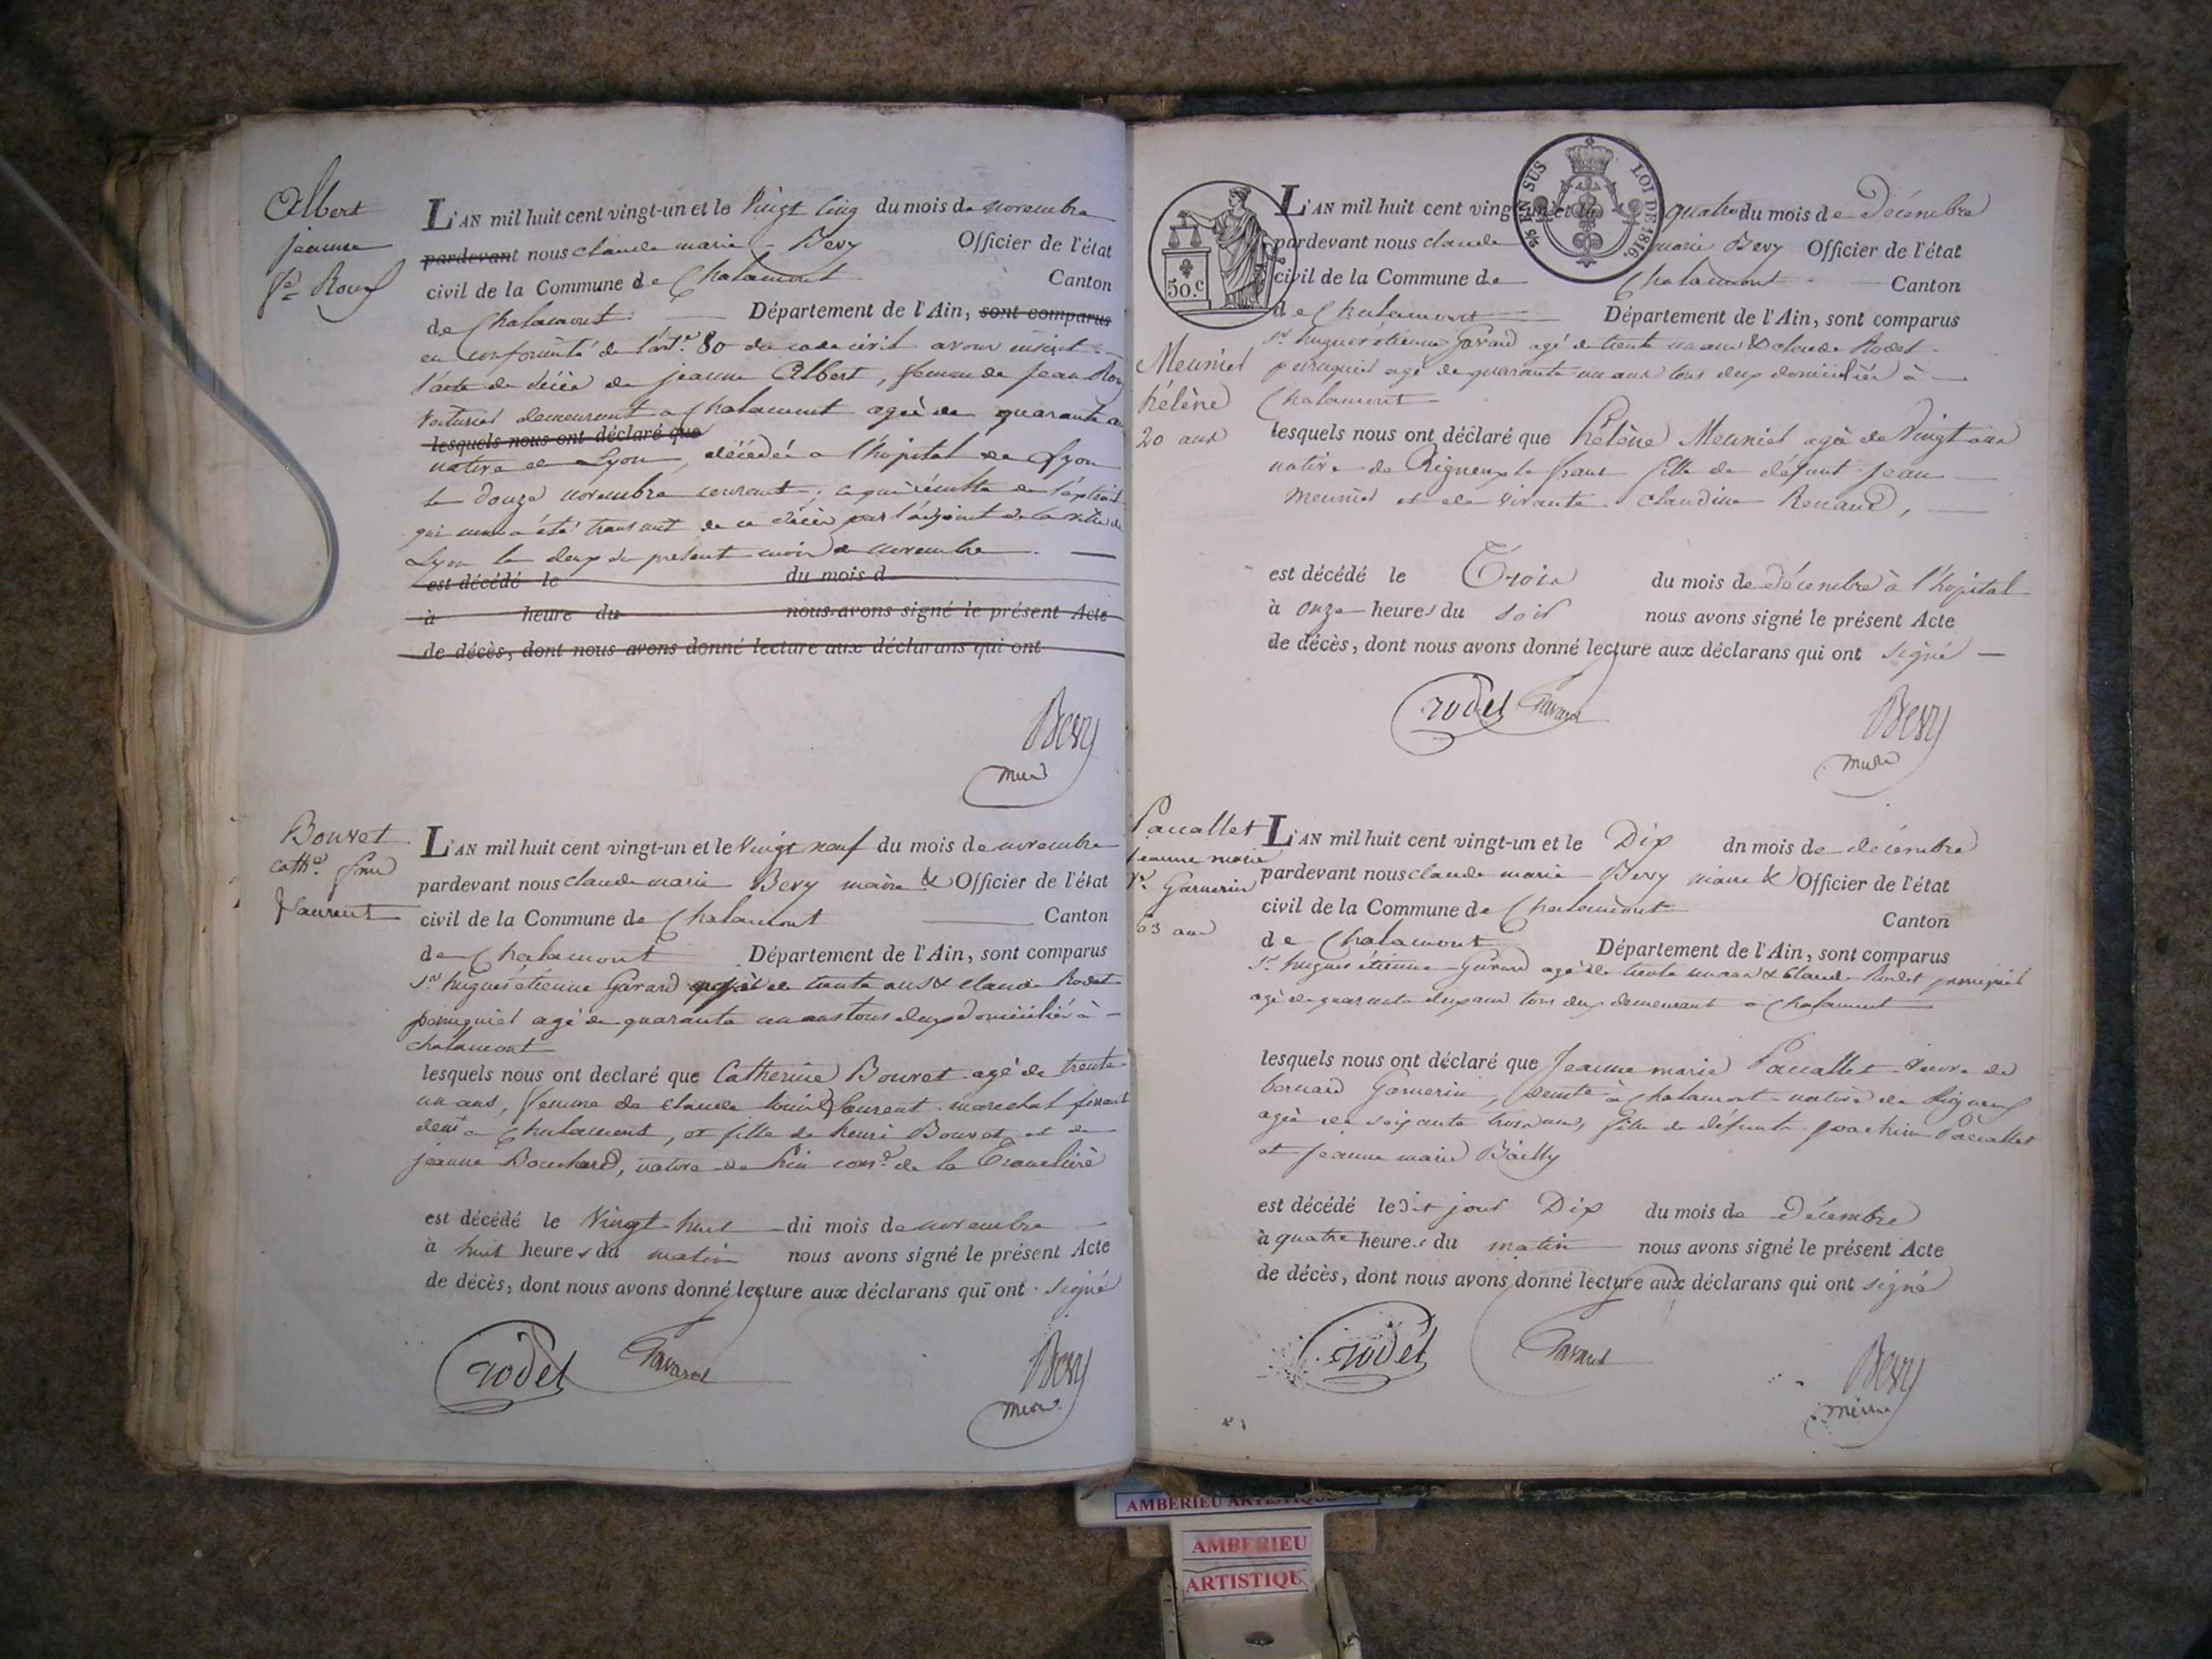 Albert
jeanne
fe Roux
L'AN mil huit cent vingt-un et le Vingt Cinq du mois de novembre
pardevant nous claude marie Bevy Officier de l'état
civil de la Commune de Chalamont Canton
de Chalamont Département de l'Ain, sont comparus
en conformité de l'art. 80 du code civil avons inscrit
l'acte de décès de jeanne Albert, femme de jean Roux
voiturier demeurant a Chalamont agée de quarante
lesquels nous ont déclaré que
native de Lyon, décédée a l'hopital de Lyon
le douze novembre courant; ce qui résulte de l'extrait
qui nous a été transmit de ce décès par l'adjoint de la ville de
Lyon le deux du présent mois de novembre.
est décédé le du mois d
à heure du nous avons signé le présent Acte
de décès, dont nous avons donné lecture aux déclarans qui ont
Bevy
Bouvet
cathe fme
Laurent
L'AN mil huit cent vingt-un et le Vingt neuf du mois de novembre
pardevant nous claude marie Bevy maire & Officier de l'état
civil de la Commune de Chalamont Canton
de Chalamont Département de l'Ain, sont comparus
sr hugues étienne Gavard agé de trente ans & claude Rodet
perruquier agé de quarante un ans tous deux domiciliés à
chalamont
lesquels nous ont declaré que Catherine Bouvet agé de trente
un ans, femme de claude Laurent marechal ferrant
demt a Chalamont, et fille de henri Bouvet et de
jeanne Bouchard, native de la Tranclière
est décédé le Vingt huit du mois de novembre
à huit heures du matin nous avons signé le présent Acte
de décès, dont nous avons donné lecture aux déclarans qui ont signé
rodet Gavard Bevy
50.c
EN SUS LOI DE 1816.
L'AN mil huit cent vingt-un et le quatre du mois de Décembre
pardevant nous claude marie Bevy Officier de l'état
civil de la Commune de Chalamont Canton
de Chalamont Département de l'Ain, sont comparus
sr hugues étienne Gavard agé de trente un ans & claude Rodet
Meunier
hélène
20 ans
perruquier agé de quarante un ans tous deux domiciliés à
Chalamont
lesquels nous ont déclaré que hélène Meunier agée de Vingt ans
native de Rigneux le franc fille de défunt jean
meunier et de vivante claudine Renaud,
est décédé le Trois du mois de décembre à l'hopital
à onze heures du soir nous avons signé le présent Acte
de décès, dont nous avons donné lecture aux déclarans qui ont signé
rodet Gavard Bevy
Pacallet
jeanne marie
ve Garnerin
63 ans
L'AN mil huit cent vingt-un et le Dix dn mois de décembre
pardevant nous claude marie Bevy maire & Officier de l'état
civil de la Commune de Chalamont Canton
de Chalamont Département de l'Ain, sont comparus
sr hugues étienne Gavard agé de trente un ans & claude Rodet perruquier
agé de quarante deux ans tous deux demeurant a Chalamont
lesquels nous ont déclaré que Jeanne marie Pacallet veuve de
bernard Garnerin, demte à chalamont native de Rigneux
agée de soixante trois ans, fille de défunts joachim Pacallet
et jeanne marie Bailly
est décédé le dit jour Dix du mois de Décembre
à quatre heures du matin nous avons signé le présent Acte
de décès, dont nous avons donné lecture aux déclarans qui ont signé
rodet Gavard Bevy
AMBERIEU ARTISTIQUE
AMBERIEU
ARTISTIQU